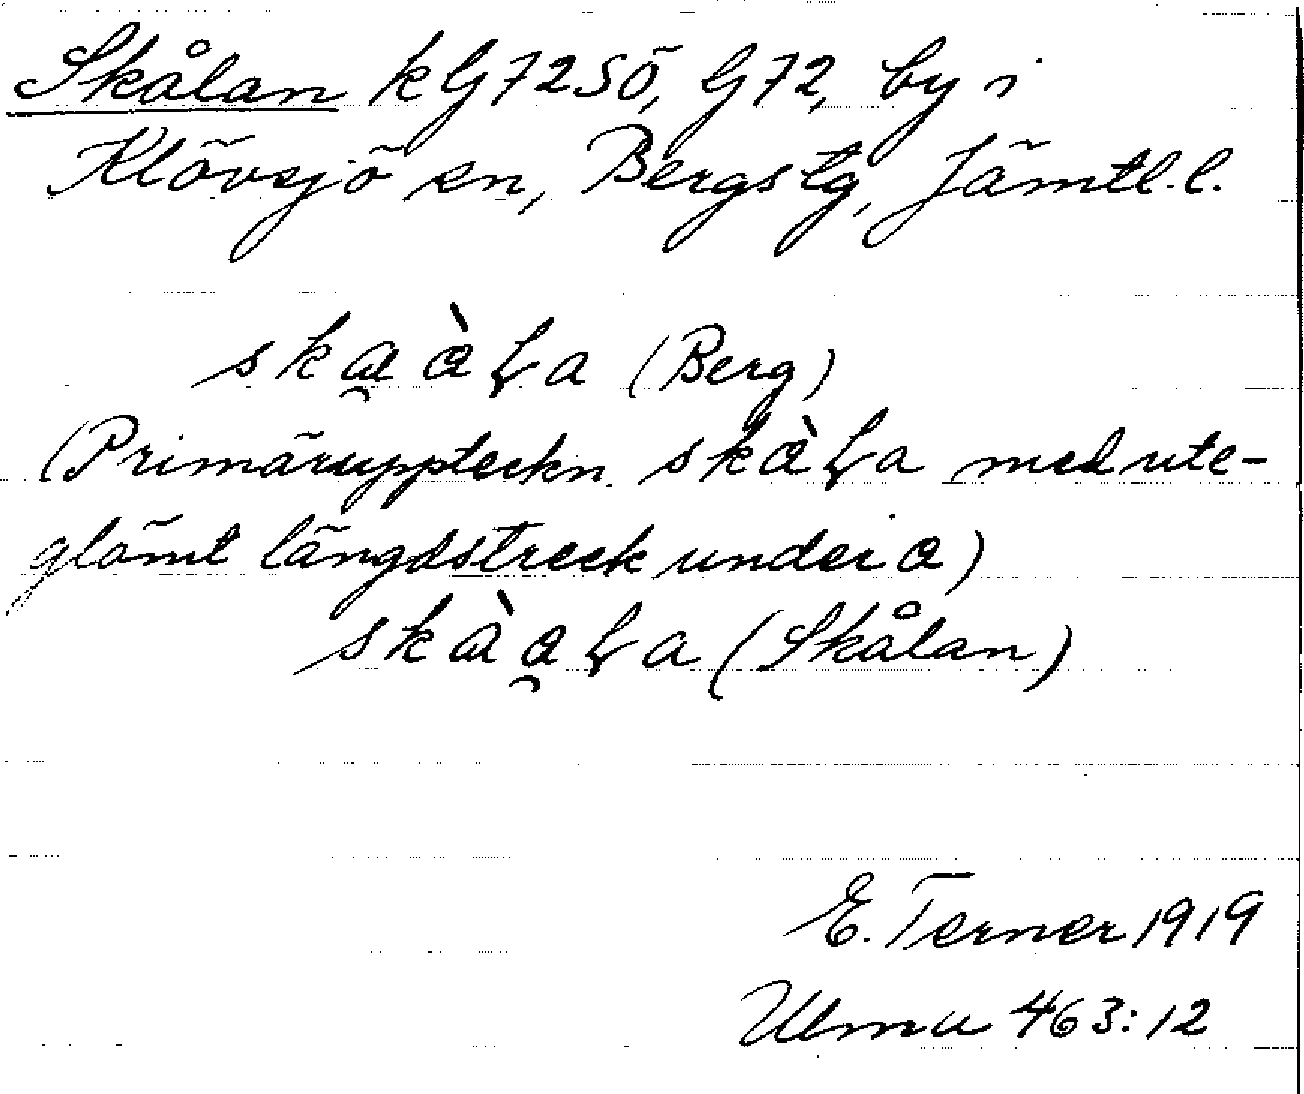 Skålan kG72SÖ, G72, by i
Klövsjö sn, Bergs tg, Jämtl.l.
ska̯àꞭa (Berg)
(Primäruppteckn. skàꞭa med ute-
glömt längdstreck under a)
skàa̯Ɬa (Skålan)
E. Terner 1919
Ulma 463:12